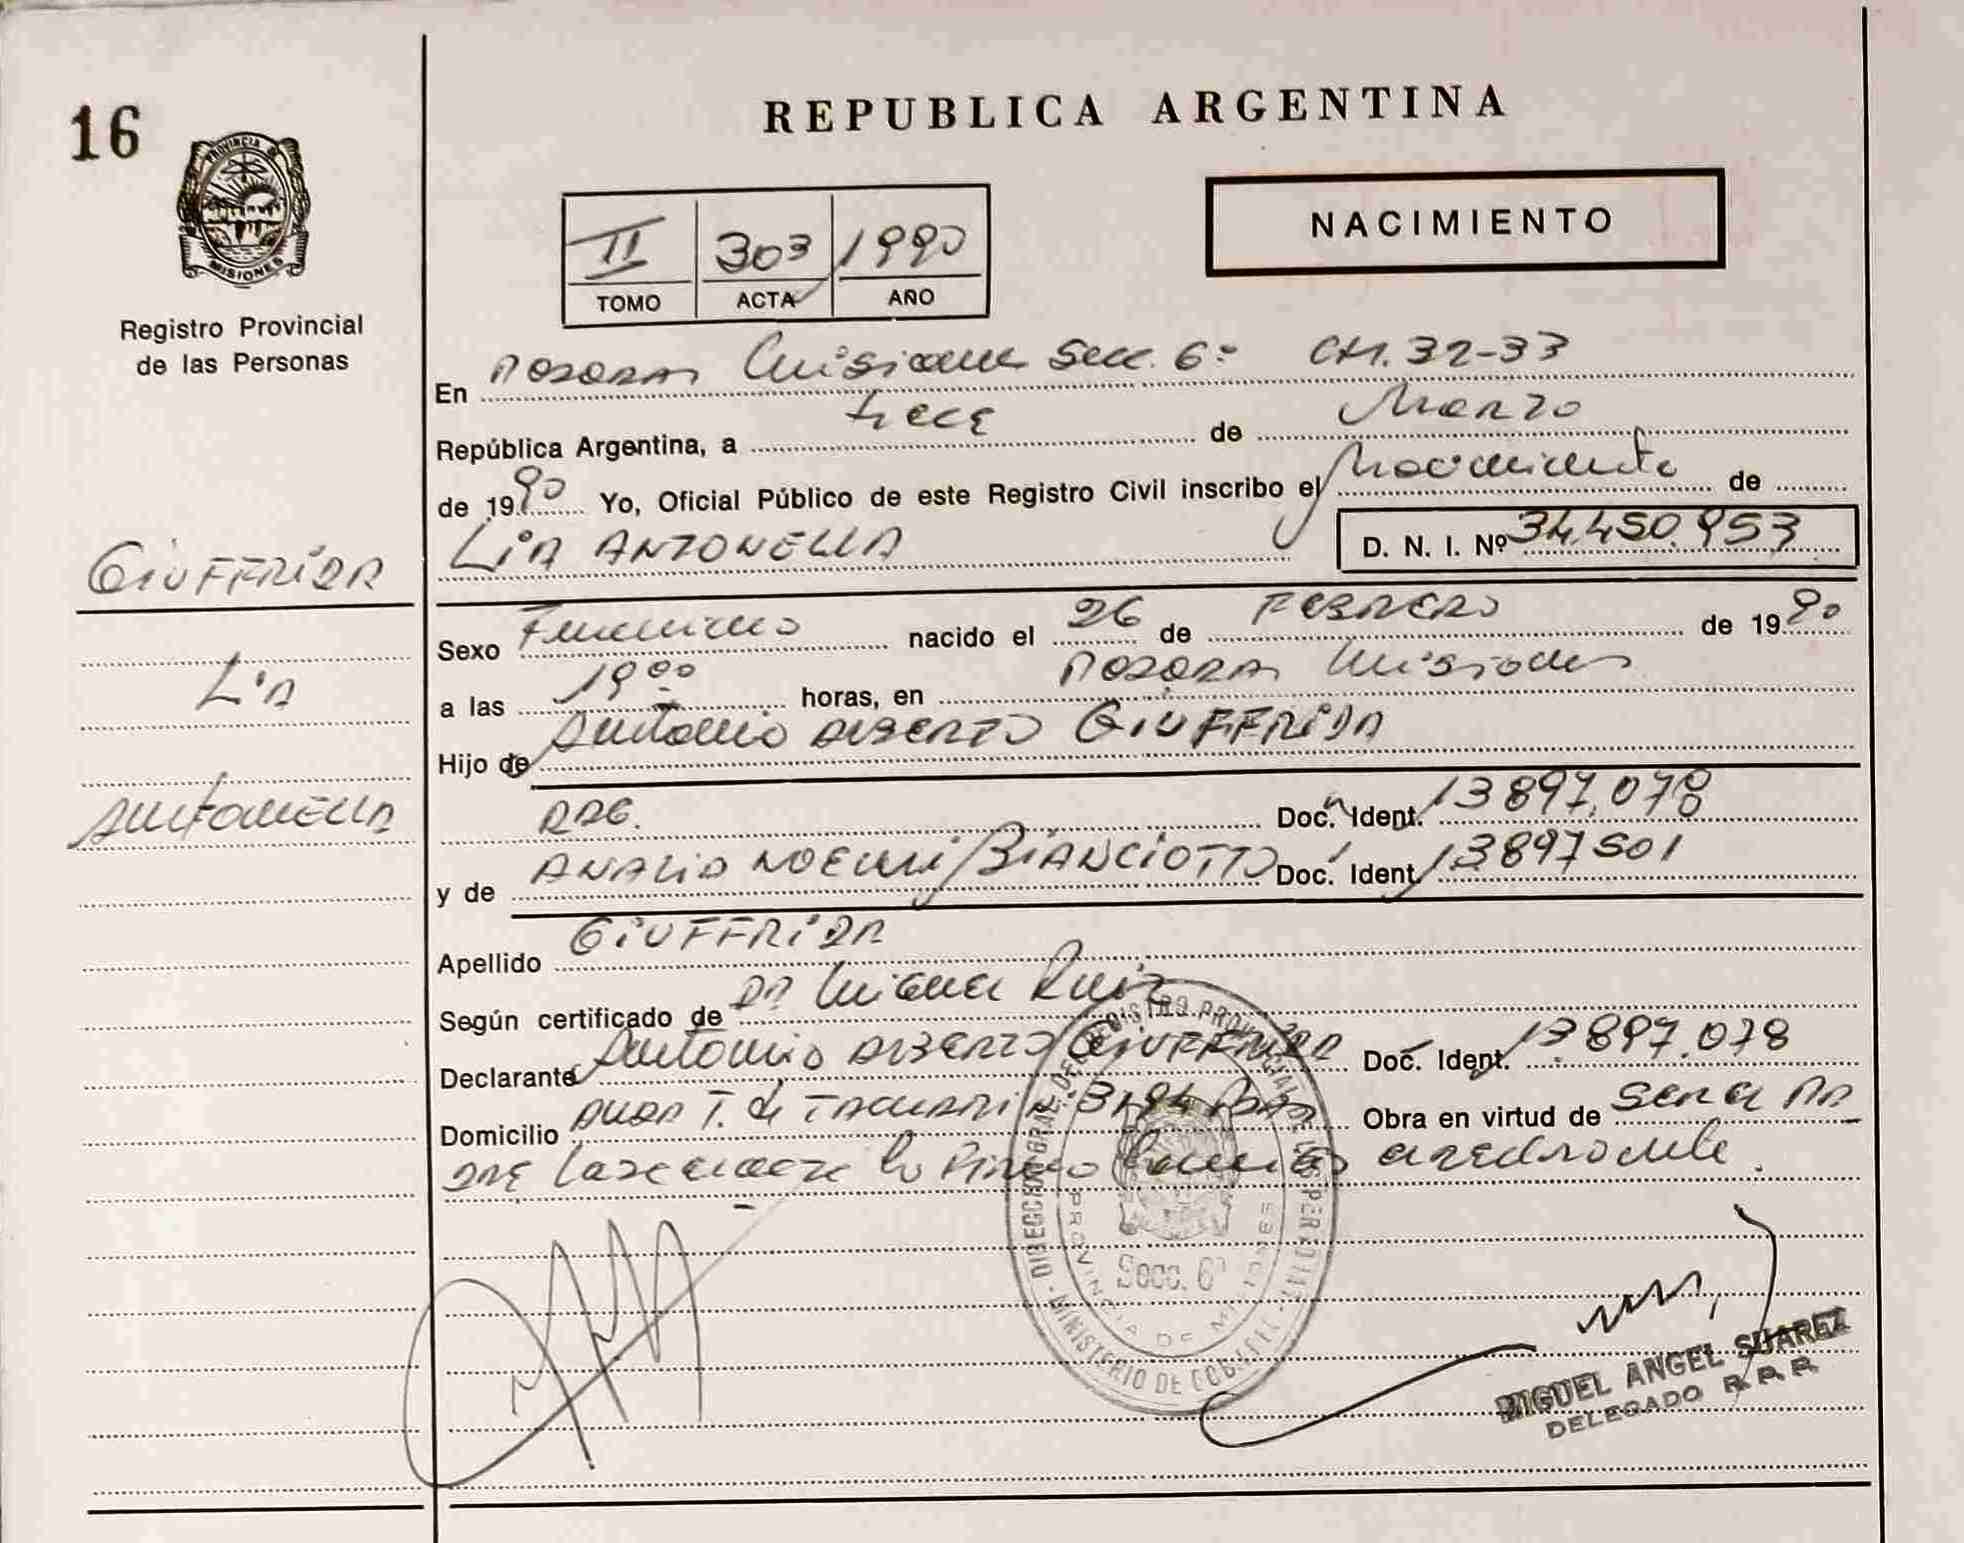 16
PROVINCIA DE
MISIONES
Registro Provincial
de las Personas
REPUBLICA ARGENTINA
II 303 1990
TOMO ACTA AÑO
NACIMIENTO
En Posadas Misiones Secc. 6º CH. 32-33
República Argentina, a trece de Marzo
de 1990 Yo, Oficial Público de este Registro Civil inscribo el Nacimiento de
LiA ANTONELLA D. N. I. Nº 34.450.953
GiUFFRiDA
Lia
Antonella
Sexo Femenino nacido el 26 de FEBRERO de 1990
a las 19 00 horas, en Posadas Misiones
Hijo de Antonio ALBERTO GiUFFRiDA
ARG. Doc. Ident. 13897.078
y de ANALIA NOEMI BiANCiOTTO Doc. Ident. 13897501
Apellido GiUFFRiDA
Según certificado de DR Miguel Ruiz
Declarante Antonio ALBERTO GiUFFRiDA Doc. Ident. 13.897.078
Domicilio T. de TACUARI 3194 Obra en virtud de ser el PA
DRE
DIRECCION GRAL. DE REGISTRO PROVINCIAL DE LAS PERSONAS
MINISTERIO DE GOB.
PROVINCIA DE MISIONES
Secc. 6ª
MIGUEL ANGEL SUAREZ
DELEGADO R. P. P.